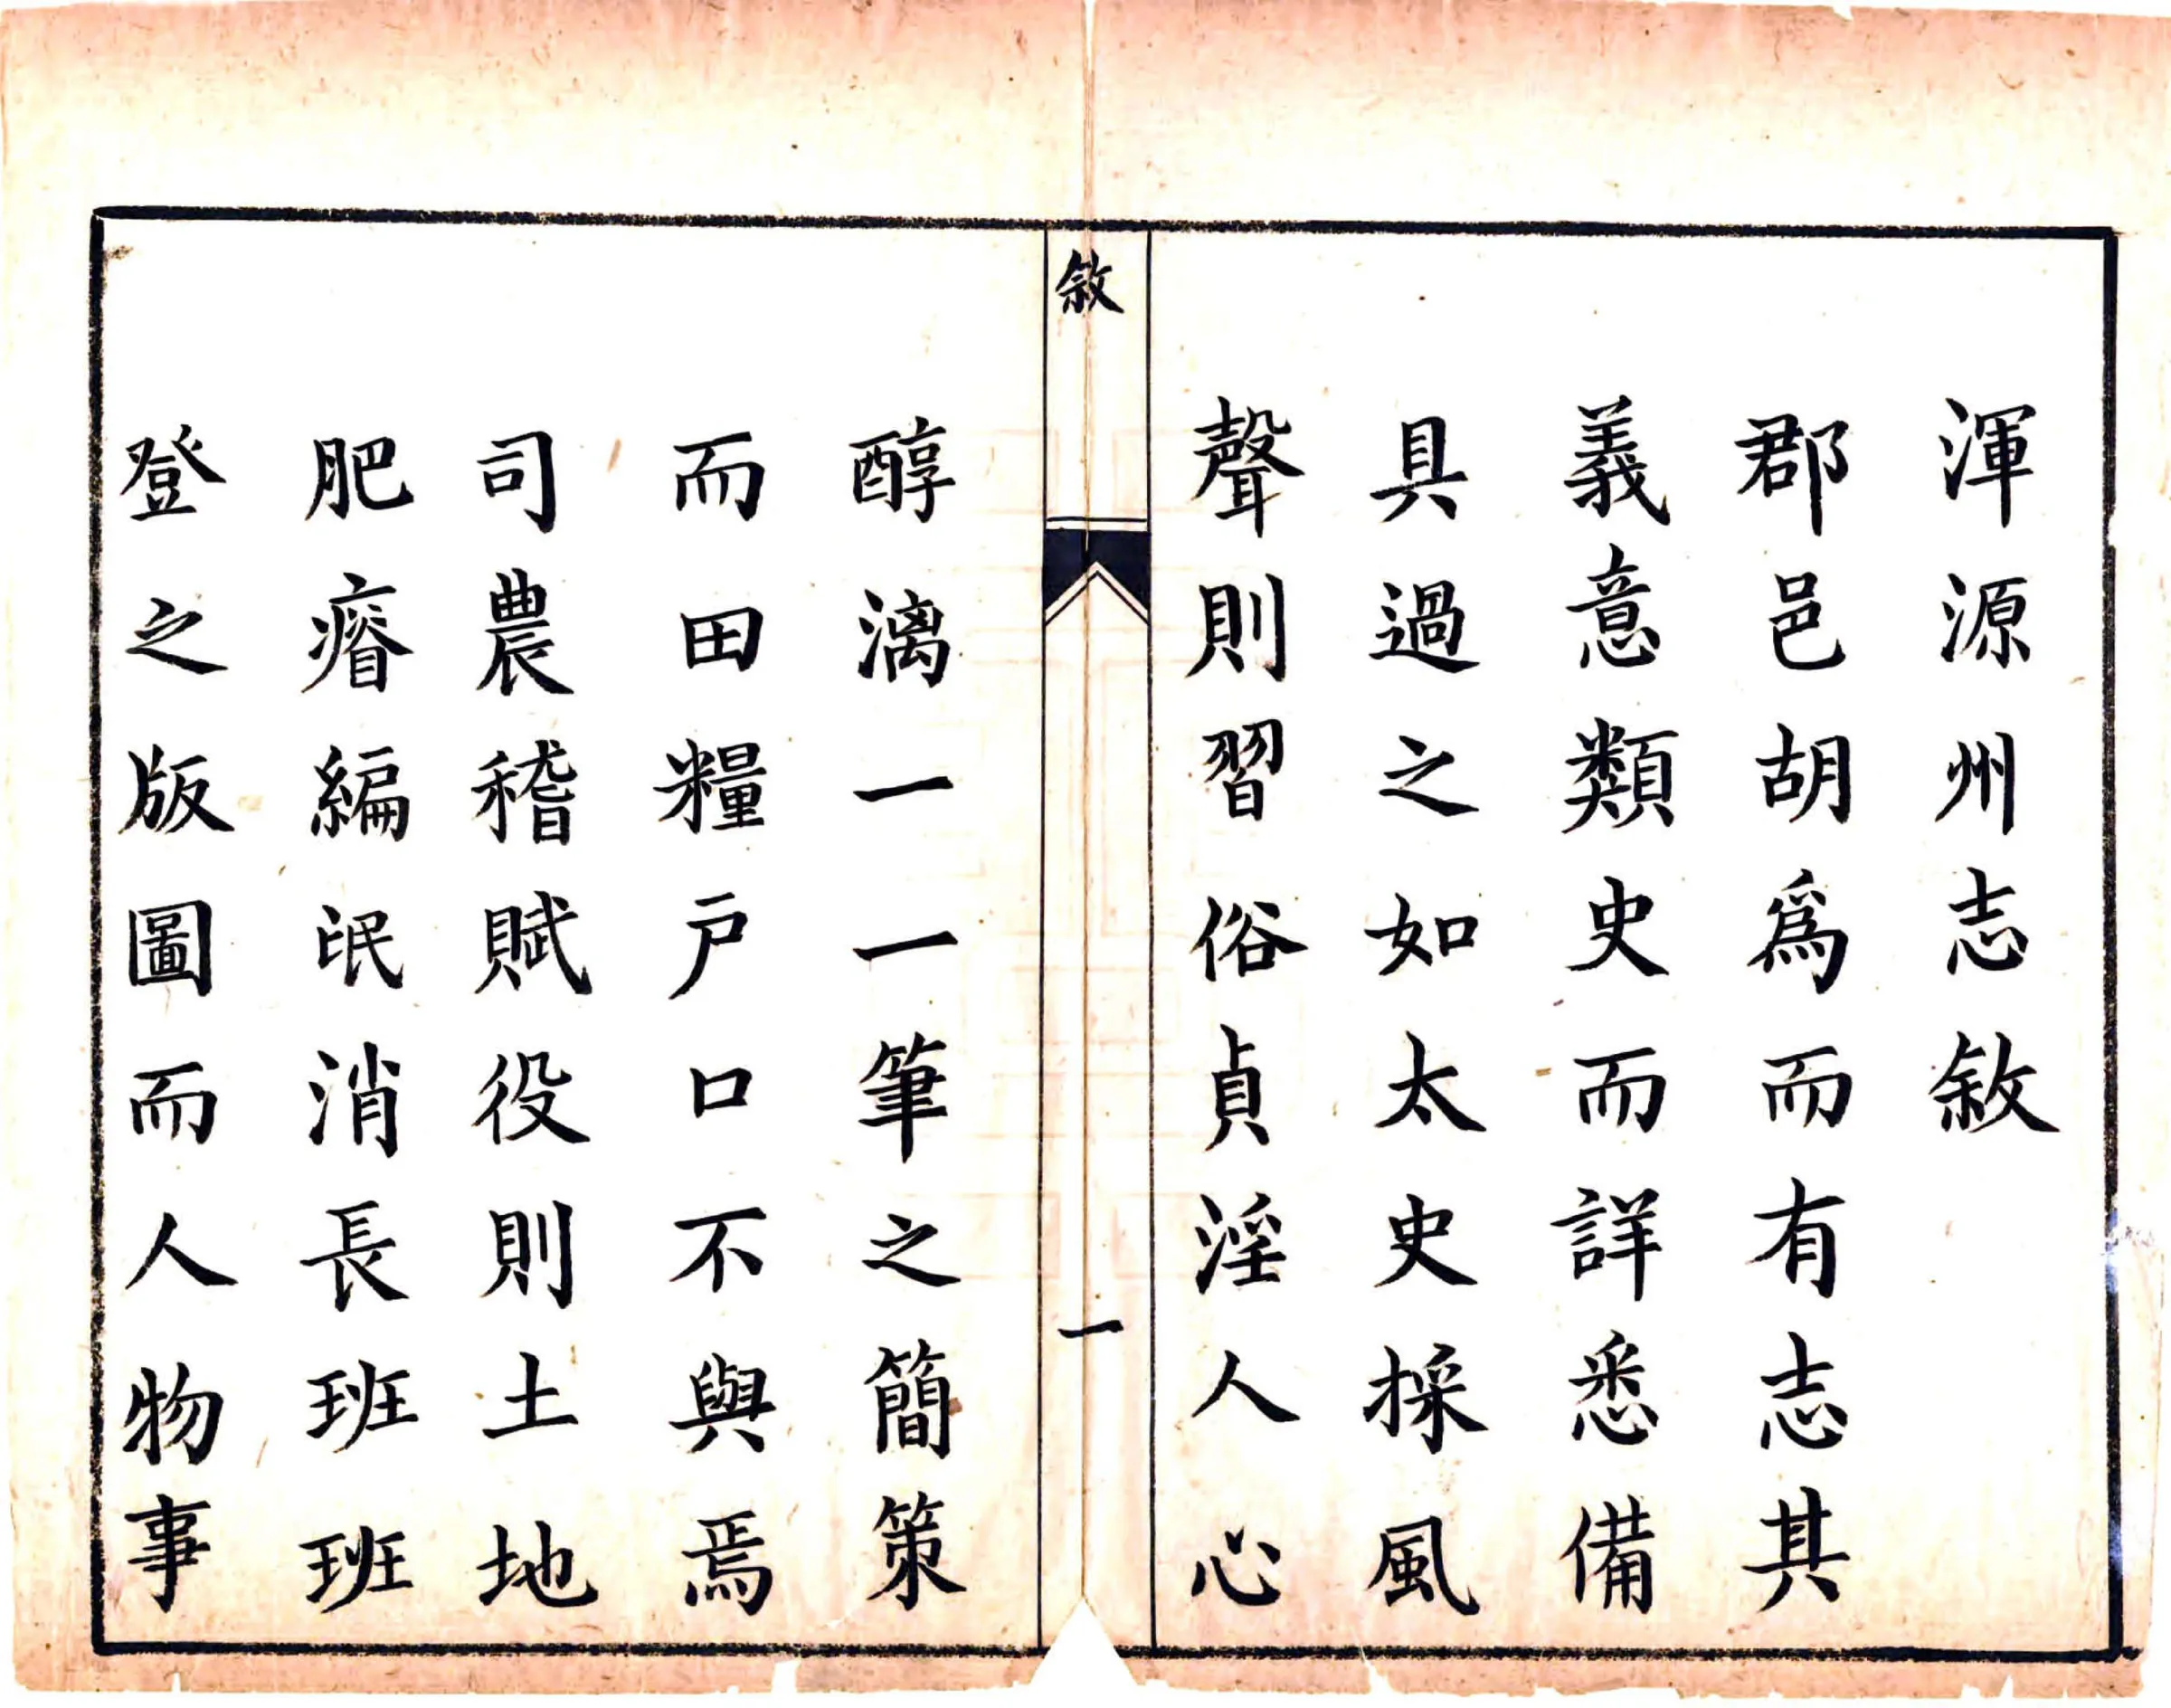 渾源州志敘
郡邑胡爲而有志其
義意類史而詳悉備
具過之如太史採風
聲則習俗貞淫人心
敘
一
醇漓一一筆之簡策
而田糧户口不與焉
司農稽賦役則土地
肥瘠編氓消長班班
登之版圖而人物事